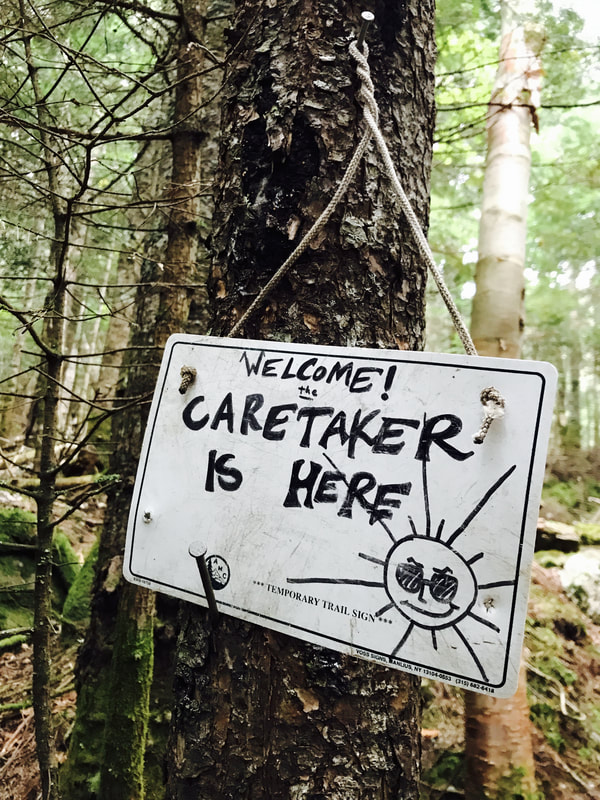 WELCOME!
the
CARETAKER
IS HERE
AMC
*** TEMPORARY TRAIL SIGN ***
VOSS SIGNS, MANLIUS, NY 13104-0553 (315) 682-6418